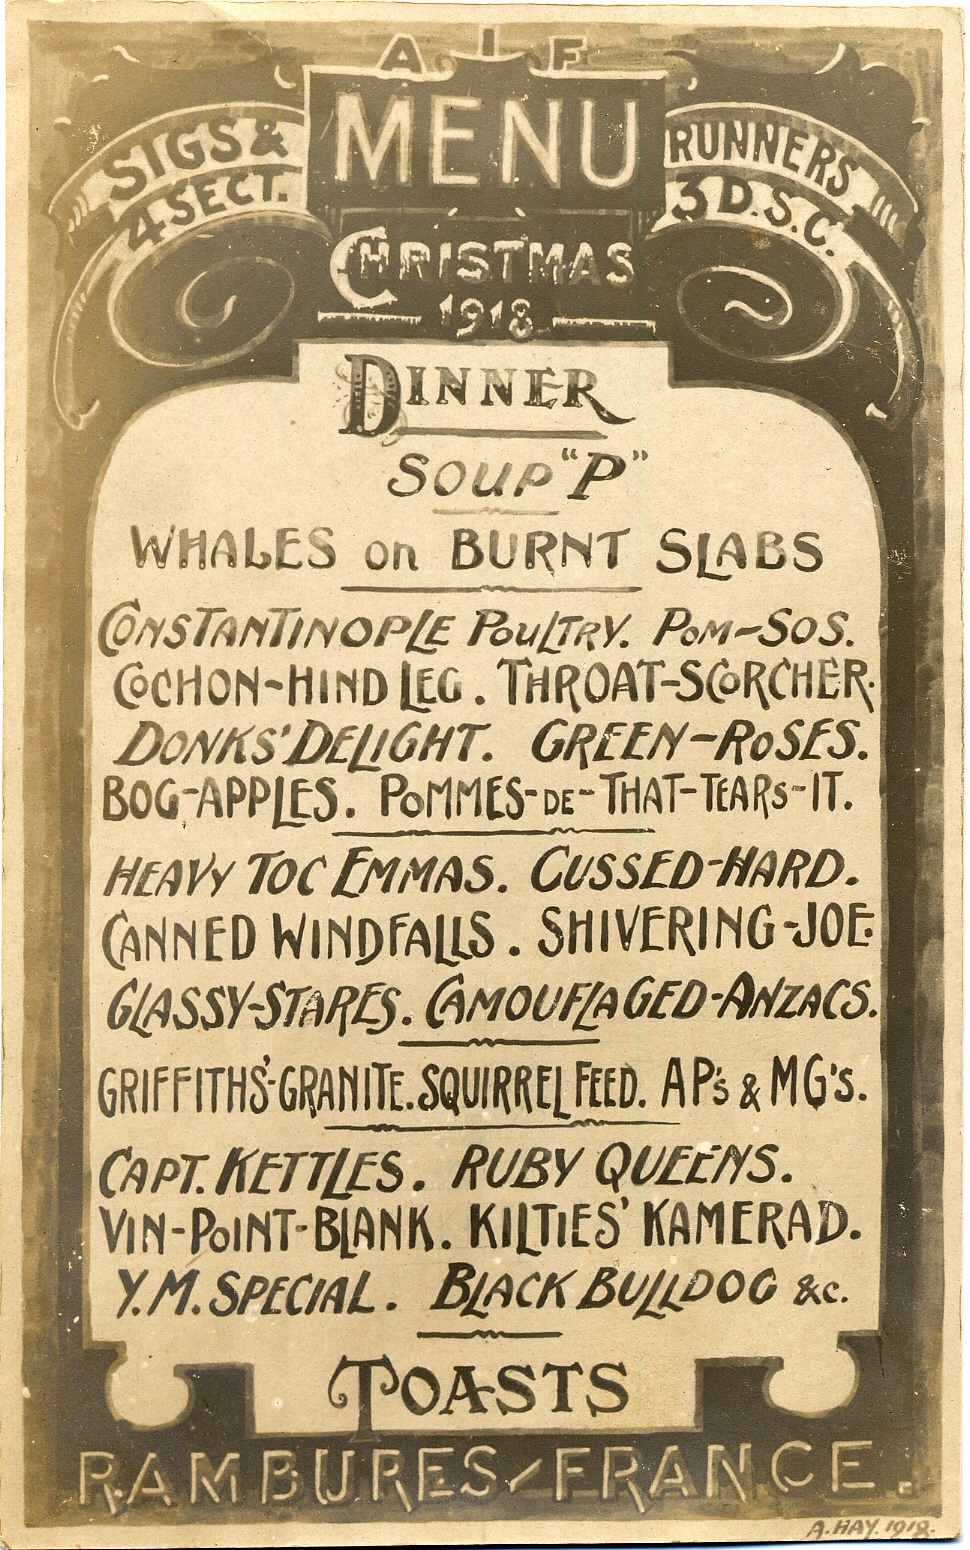 A I F
MENU
SIGS &
4 SECT.
RUNNERS
3 D.S.C.
CHRISTMAS
1918
DINNER
SOUP "P"
WHALES on BURNT SLABS
CONSTANTINOPLE POULTRY. POM-SOS.
COCHON-HIND LEG. THROAT-SCORCHER.
DONKS' DELIGHT. GREEN-ROSES.
BOG-APPLES. POMMES-DE-THAT-TEARS-IT.
HEAVY TOC EMMAS. CUSSED-HARD.
CANNED WINDFALLS. SHIVERING-JOE.
GLASSY-STARES. CAMOUFLAGED-ANZACS.
GRIFFITHS'-GRANITE. SQUIRREL FEED. AP's & MG's.
CAPT. KETTLES. RUBY QUEENS.
VIN-POINT-BLANK. KILTIES' KAMERAD.
Y.M. SPECIAL. BLACK BULLDOG &c.
TOASTS
RAMBURES-FRANCE.
A. HAY. 1918.